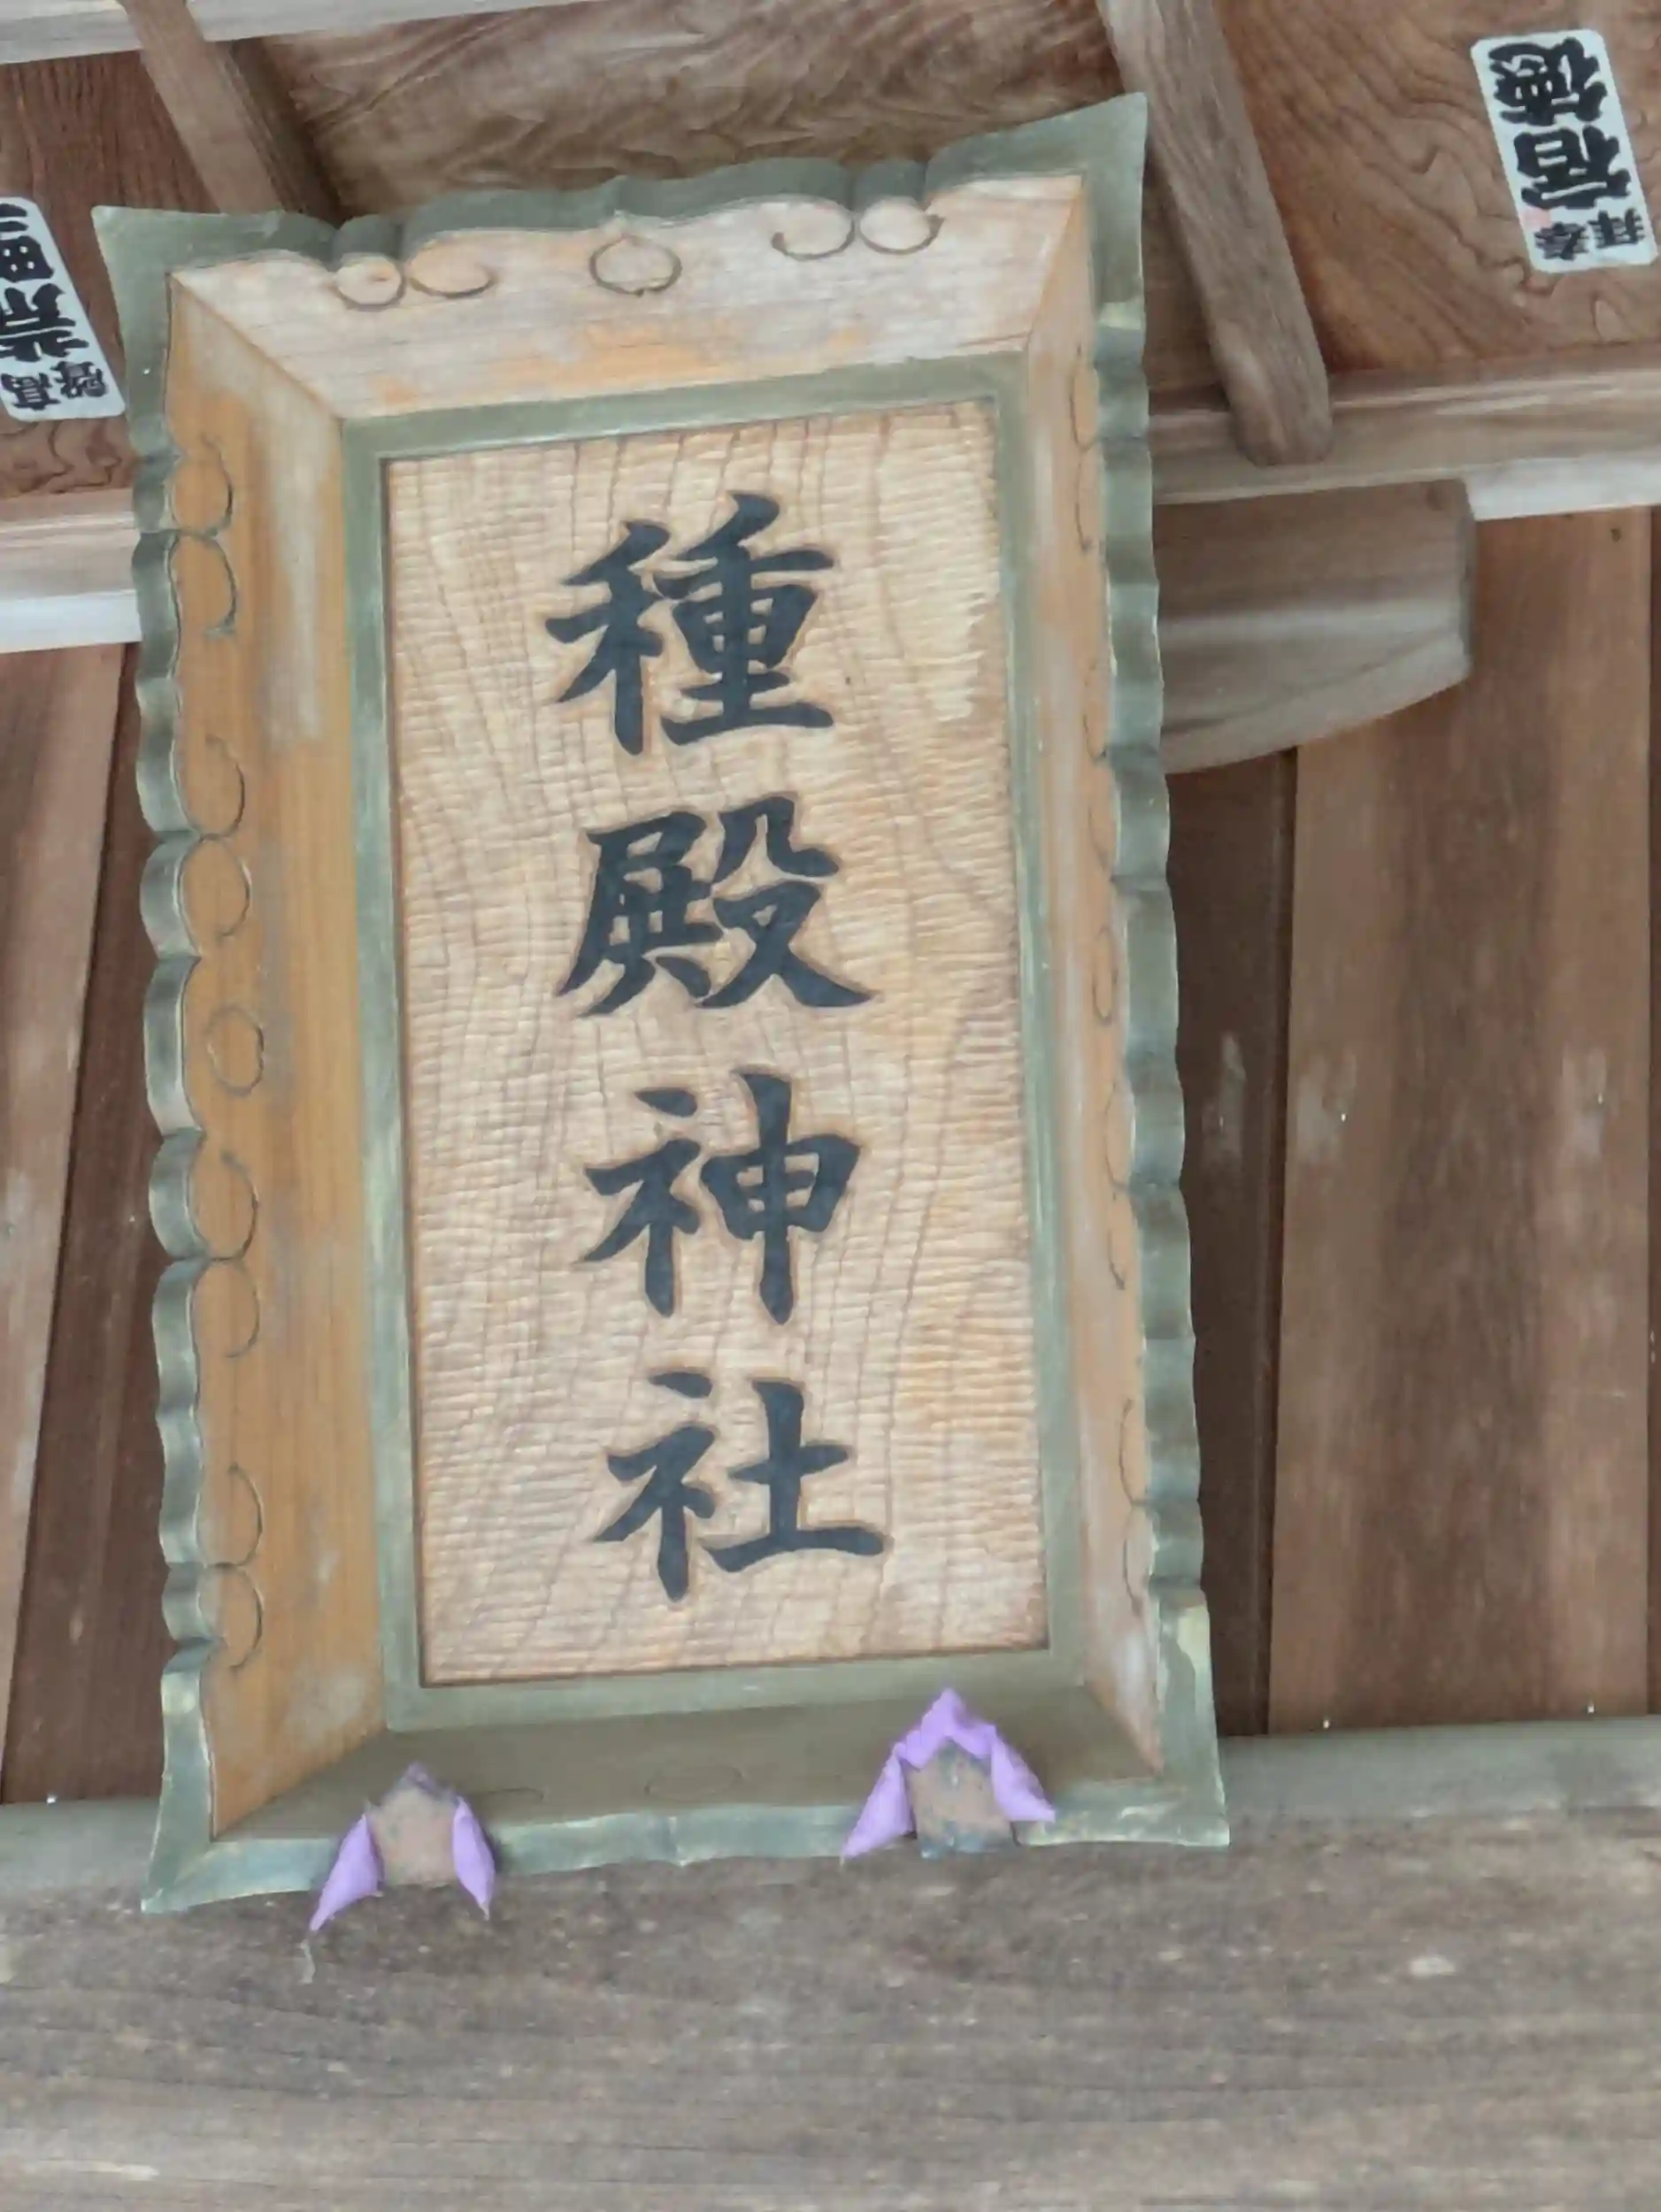 種殿神社